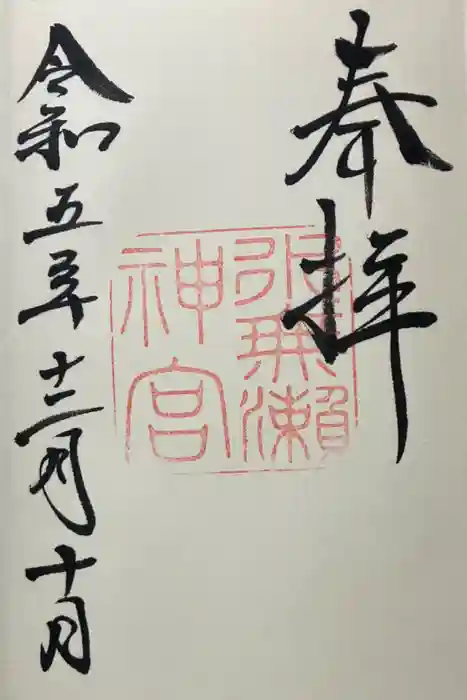 奉拝
水無瀬
神宮
令和五年十二月十日